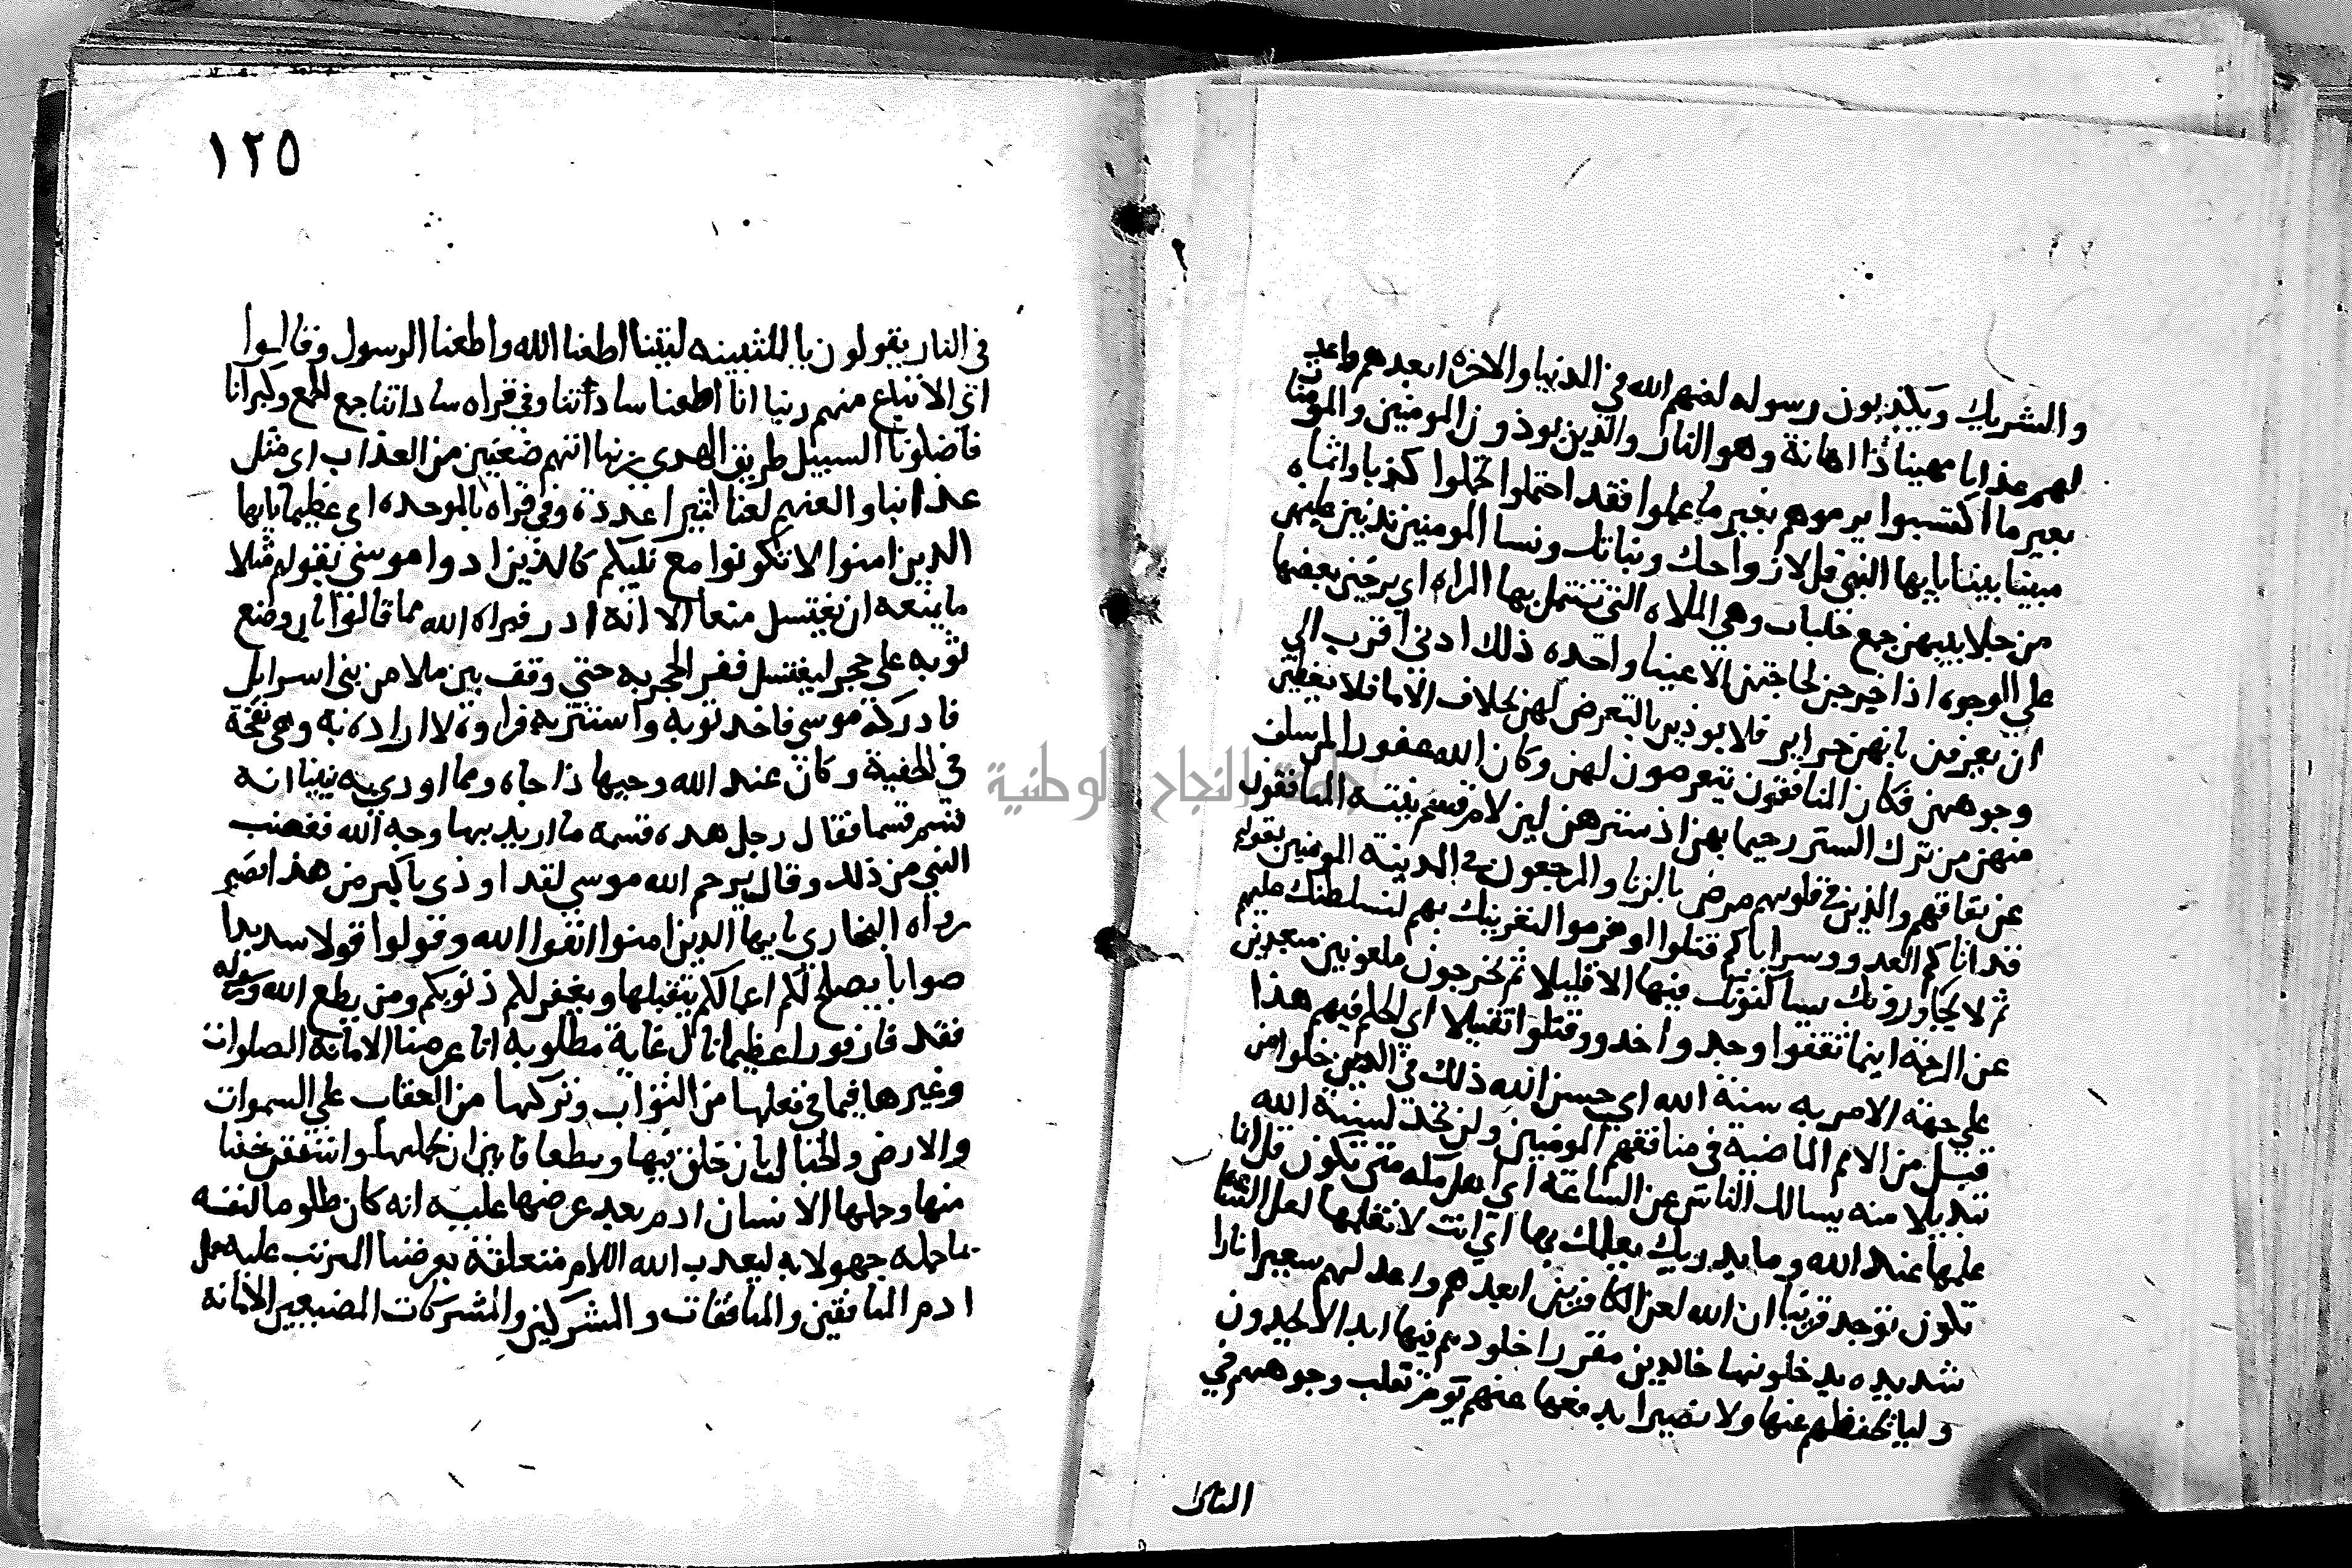 والشريك ويكذبون رسوله لعنهم الله في الدنيا والاخره ابعدهم واعد
لهم عذابا مهينا ذا اهانة وهو النار والذين يوذون المومنين والمومنات
بغير ما اكتسبوا يرموهم بغير ما عملوا فقد احتملوا تحملوا كذبا واثما
مبينا بينا يايها النبي قل لازواجك وبناتك ونسا المومنين يدنين عليهن
من جلابيبهن جمع جلباب وهي الملاه التي تشتمل بها المراه اي يرخين بعضها
علي الوجوه اذا خرجن لحاجتهن الا عينا واحده ذلك ادني اقرب الي
ان يعرفن بانهن حراير فلا يوذين بالتعرض لهن بخلاف الاما فلا يغطين
وجوههن فكان المنافقون يتعرضون لهن وكان الله غفورا لما سلف
منهن من ترك الستر رحيما بهن اذ سترهن لين لام قسم ينته المنافقون
عن نفاقهم والذين في قلوبهم مرض بالزنا والمرجفون في المدينة المومنين بقولهم
قد اتاكم العدو وسراياكم قتلوا او هزموا لنغرينك بهم لنسلطنك عليهم
ثم لا يجاورونك يساكنونك فيها الا قليلا ثم يخرجون ملعونين مبعدين
عن الرحمة اينما ثقفوا وجدوا اخدوا وقتلوا تقتيلا اي الحكم فيهم هذا
علي جهة الامر به سنة الله اي سن الله ذلك في الذين خلوا من
قبل من الامم الماضية في منافقهم المومنين ولن تجد لسنة الله
تبديلا منه يسالك الناس عن الساعة اي اهل مكه متي تكون قل انما
علمها عند الله وما يدريك يعلمك بها اي انت لا تعلمها لعل الساعة
تكون توجد قريبا ان الله لعن الكافرين ابعدهم واعد لهم سعيرا نارا
شديده يدخلونها خالدين مقدرا خلودهم فيها ابدا لا يجدون
وليا يحفظهم عنها ولا نصيرا يدفعها عنهم يوم تقلب وجوههم في
النار
١٢٥
في النار يقولون يا للتنبيه ليتنا اطعنا الله واطعنا الرسول وقالوا
اي الاتباع منهم ربنا انا اطعنا سادتنا وفي قراه ساداتنا جمع الجمع وكبرانا
فاضلونا السبيل طريق الهدي ربنا اتهم ضعفين من العذاب اي مثلي
عذابنا والعنهم لعنا كثيرا عدده وفي قراه بالموحده اي عظيما يايها
الذين امنوا لا تكونوا مع نبيكم كالذين ادوا موسي بقولهم مثلا
ما يمنعه ان يغتسل معنا الا انه ادر فبراه الله مما قالوا بان وضع
ثوبه علي حجر ليغتسل ففر الحجر به حتي وقف بين ملا من بني اسرايل
فادركه موسي فاخد ثوبه واستتر به فراوه لا ادره به وهي نفخة
في الخصية وكان عند الله وجيها ذا جاه ومما اودي به نبينا انه
قسم قسما فقال رجل هده قسمة ما اريد بها وجه الله فغضب
النبي من ذلك وقال يرحم الله موسي لقد اوذي باكبر من هذا فصبر
رواه البخاري يايها الدين امنوا اتقوا الله وقولوا قولا سديدا
صوابا يصلح لكم اعمالكم يتقبلها ويغفر لكم ذنوبكم ومن يطع الله ورسوله
فقد فاز فوزا عظيما نال غاية مطلوبه انا عرضنا الامانة الصلوات
وغيرها فيما في فعلها من الثواب وتركها من العقاب علي السموات
والارض والجبال بان خلق فيها ونطقا فابين ان يحملنها واشفقن خفنا
منها وحملها الانسان ادم بعد عرضها عليه انه كان ظلوما لنفسه
بما حمله جهولا به ليعدب الله اللام متعلقة بعرضنا المرتب عليه حمل
ادم المنافقين والمنافقات والمشركين والمشركات المضيعين الامانة
جامعة النجاح الوطنية